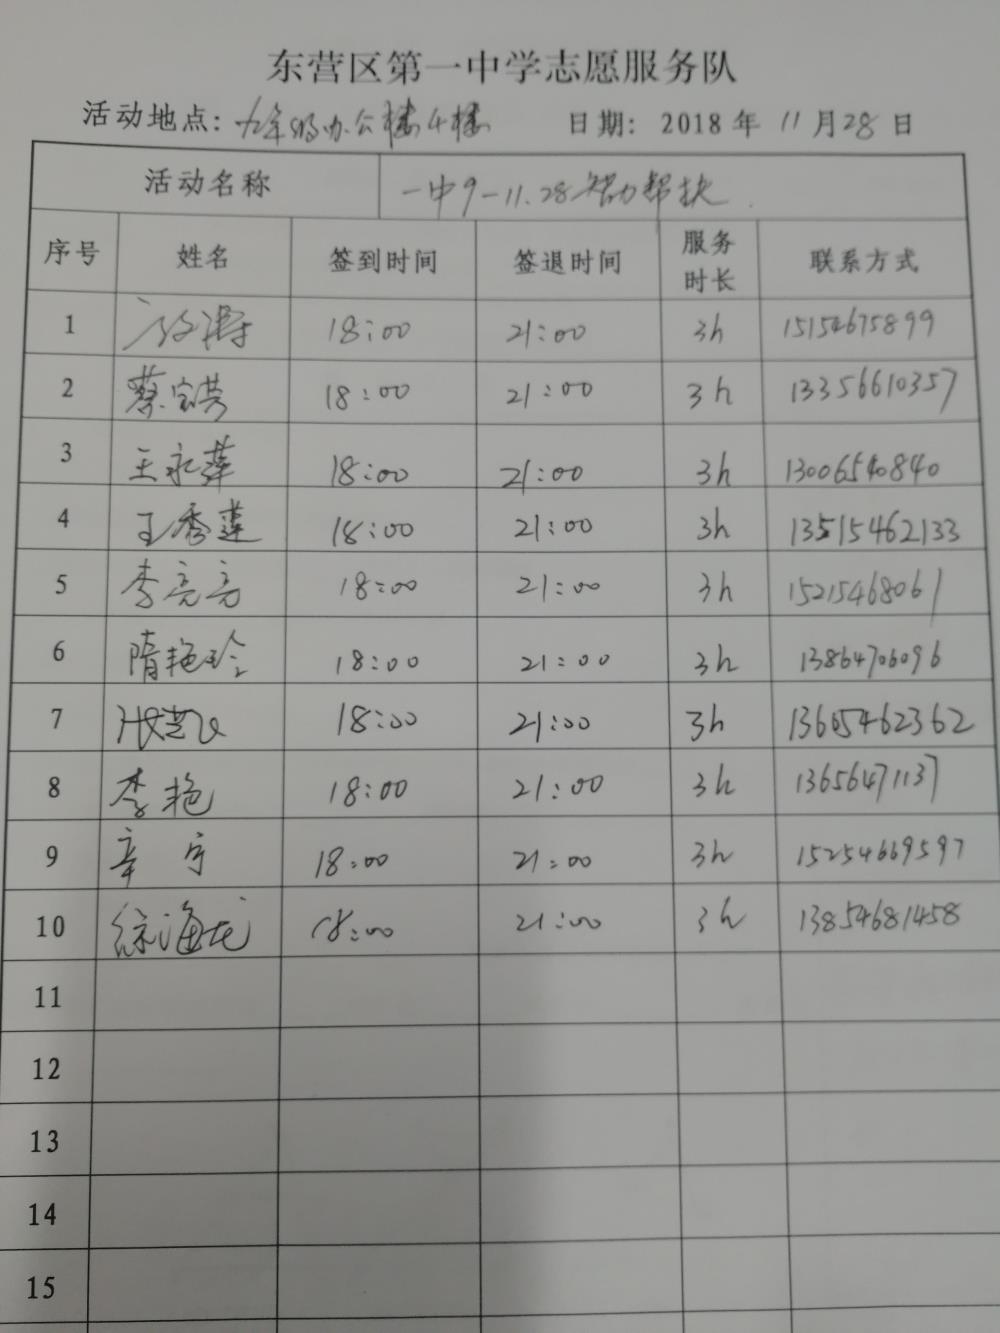 东营区第一中学志愿服务队
活动地点: 九年级办公楼4楼 日期: 2018年11月28日
活动名称 一中9-11.28智力帮扶
序号 姓名 签到时间 签退时间 服务时长 联系方式
1 18:00 21:00 3h 15154675899
2 蔡宝芳 18:00 21:00 3h 13356610357
3 王永萍 18:00 21:00 3h 13006540840
4 王秀莲 18:00 21:00 3h 13515462133
5 李亮亮 18:00 21:00 3h 15215468061
6 隋艳玲 18:00 21:00 3h 13864706096
7 18:00 21:00 3h 13605462362
8 李艳 18:00 21:00 3h 13656471137
9 辛宁 18:00 21:00 3h 15254669597
10 徐海龙 18:00 21:00 3h 13854681458
11
12
13
14
15